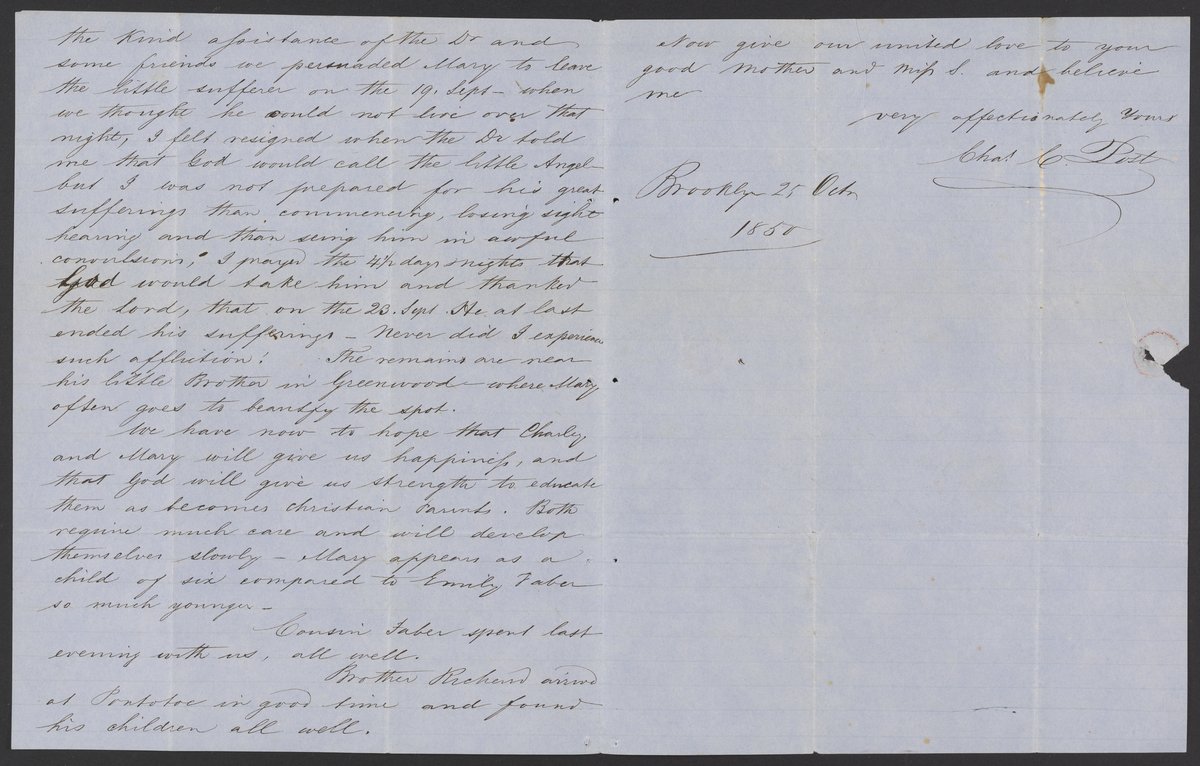 the kind assistance of the Dr and
some friends we persuaded Mary to leave
the little sufferer on the 19. Sept - when
we thought he could not live over that
night, I felt resigned when the Dr told
me that God would call the little Angel
but I was not prepared for his great
sufferings than commencing, losing sight
hearing and than seing him in awful
convulsions, I prayed the 4½ days & nights that
God would take him and thanked
the Lord, that on the 23. Sept He at last
ended his sufferings - Never did I experience
such affliction! The remains are near
his little Brother in Greenwood - where Mary
often goes to beautify the spot.
We have now to hope that Charley
and Mary will give us happiness, and
that God will give us strength to educate
them as becomes christian Parents. Both
require much care and will develop
themselves slowly - Mary appears as a
child of six compared to Emily Faber
so much younger -
Cousin Faber spent last
evening with us, all well.
Brother Richard arrived
at Pontotoc in good time and found
his children all well.
Now give our united love to your
good Mother and Miss S. and believe
me
very affectionately Yours
Chas. C. Post
Brooklyn 25 Octr
1850